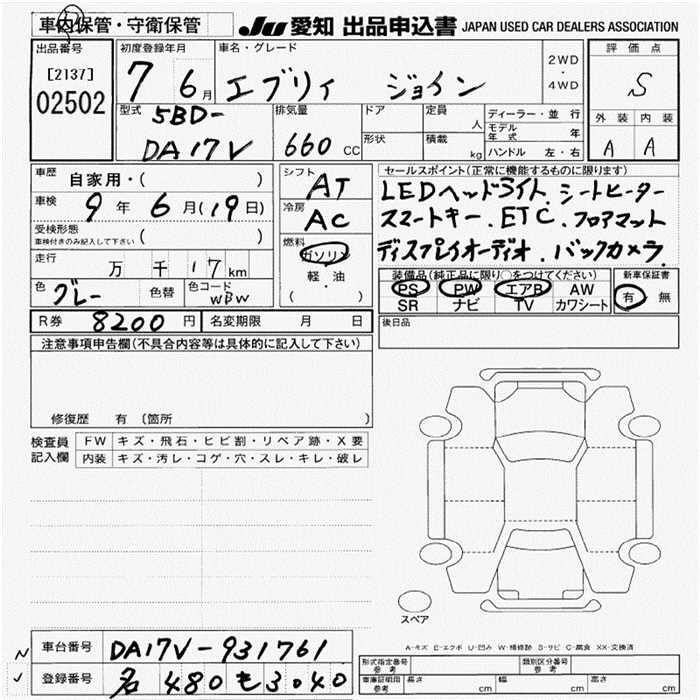 車内保管・守衛保管
JU 愛知 出品申込書 JAPAN USED CAR DEALERS ASSOCIATION
出品番号
[2137]
02502
初度登録年月
7 6月
車名・グレード
エブリィ ジョイン
2WD
・
4WD
評価点
S
外装 内装
A A
型式
5BD-
DA17V
排気量
660 CC
ドア
形状
定員 人
積載 kg
ディーラー・並行
モデル年式 年
ハンドル 左・右
車歴
自家用・( )
車検
9年 6月(19日)
受検形態
車検付きのみ記入して下さい ( )
走行
万 千 17 km
色
グレー
色替
色コード
WBW
シフト
AT
冷房
AC
燃料
ガソリン
軽・油
( )
セールスポイント(正常に機能するものに限ります)
LEDヘッドライト.シートヒーター
スマートキー.ETC.フロアマット
ディスプレイオーディオ.バックカメラ.
装備品(純正品に限り〇をつけてください)
PS PW エアB AW
SR ナビ TV カワシート
新車保証書
有 無
R券 8200 円 名変期限 月 日
後日品
注意事項申告欄(不具合内容等は具体的に記入して下さい)
修復歴 有 〔箇所 〕
検査員記入欄
FW キズ・飛石・ヒビ割・リペア跡・X要
内装 キズ・汚レ・コゲ・穴・スレ・キレ・破レ
スペア
A-キズ E-エクボ U-凹み W-補修跡 S-サビ C-腐食 XX-交換済
車台番号 DA17V-931761
登録番号 名 480 も 3040
形式指定番号 参考
類別区分番号 参考
車庫証明用 参考
長さ cm
幅 cm
高さ cm